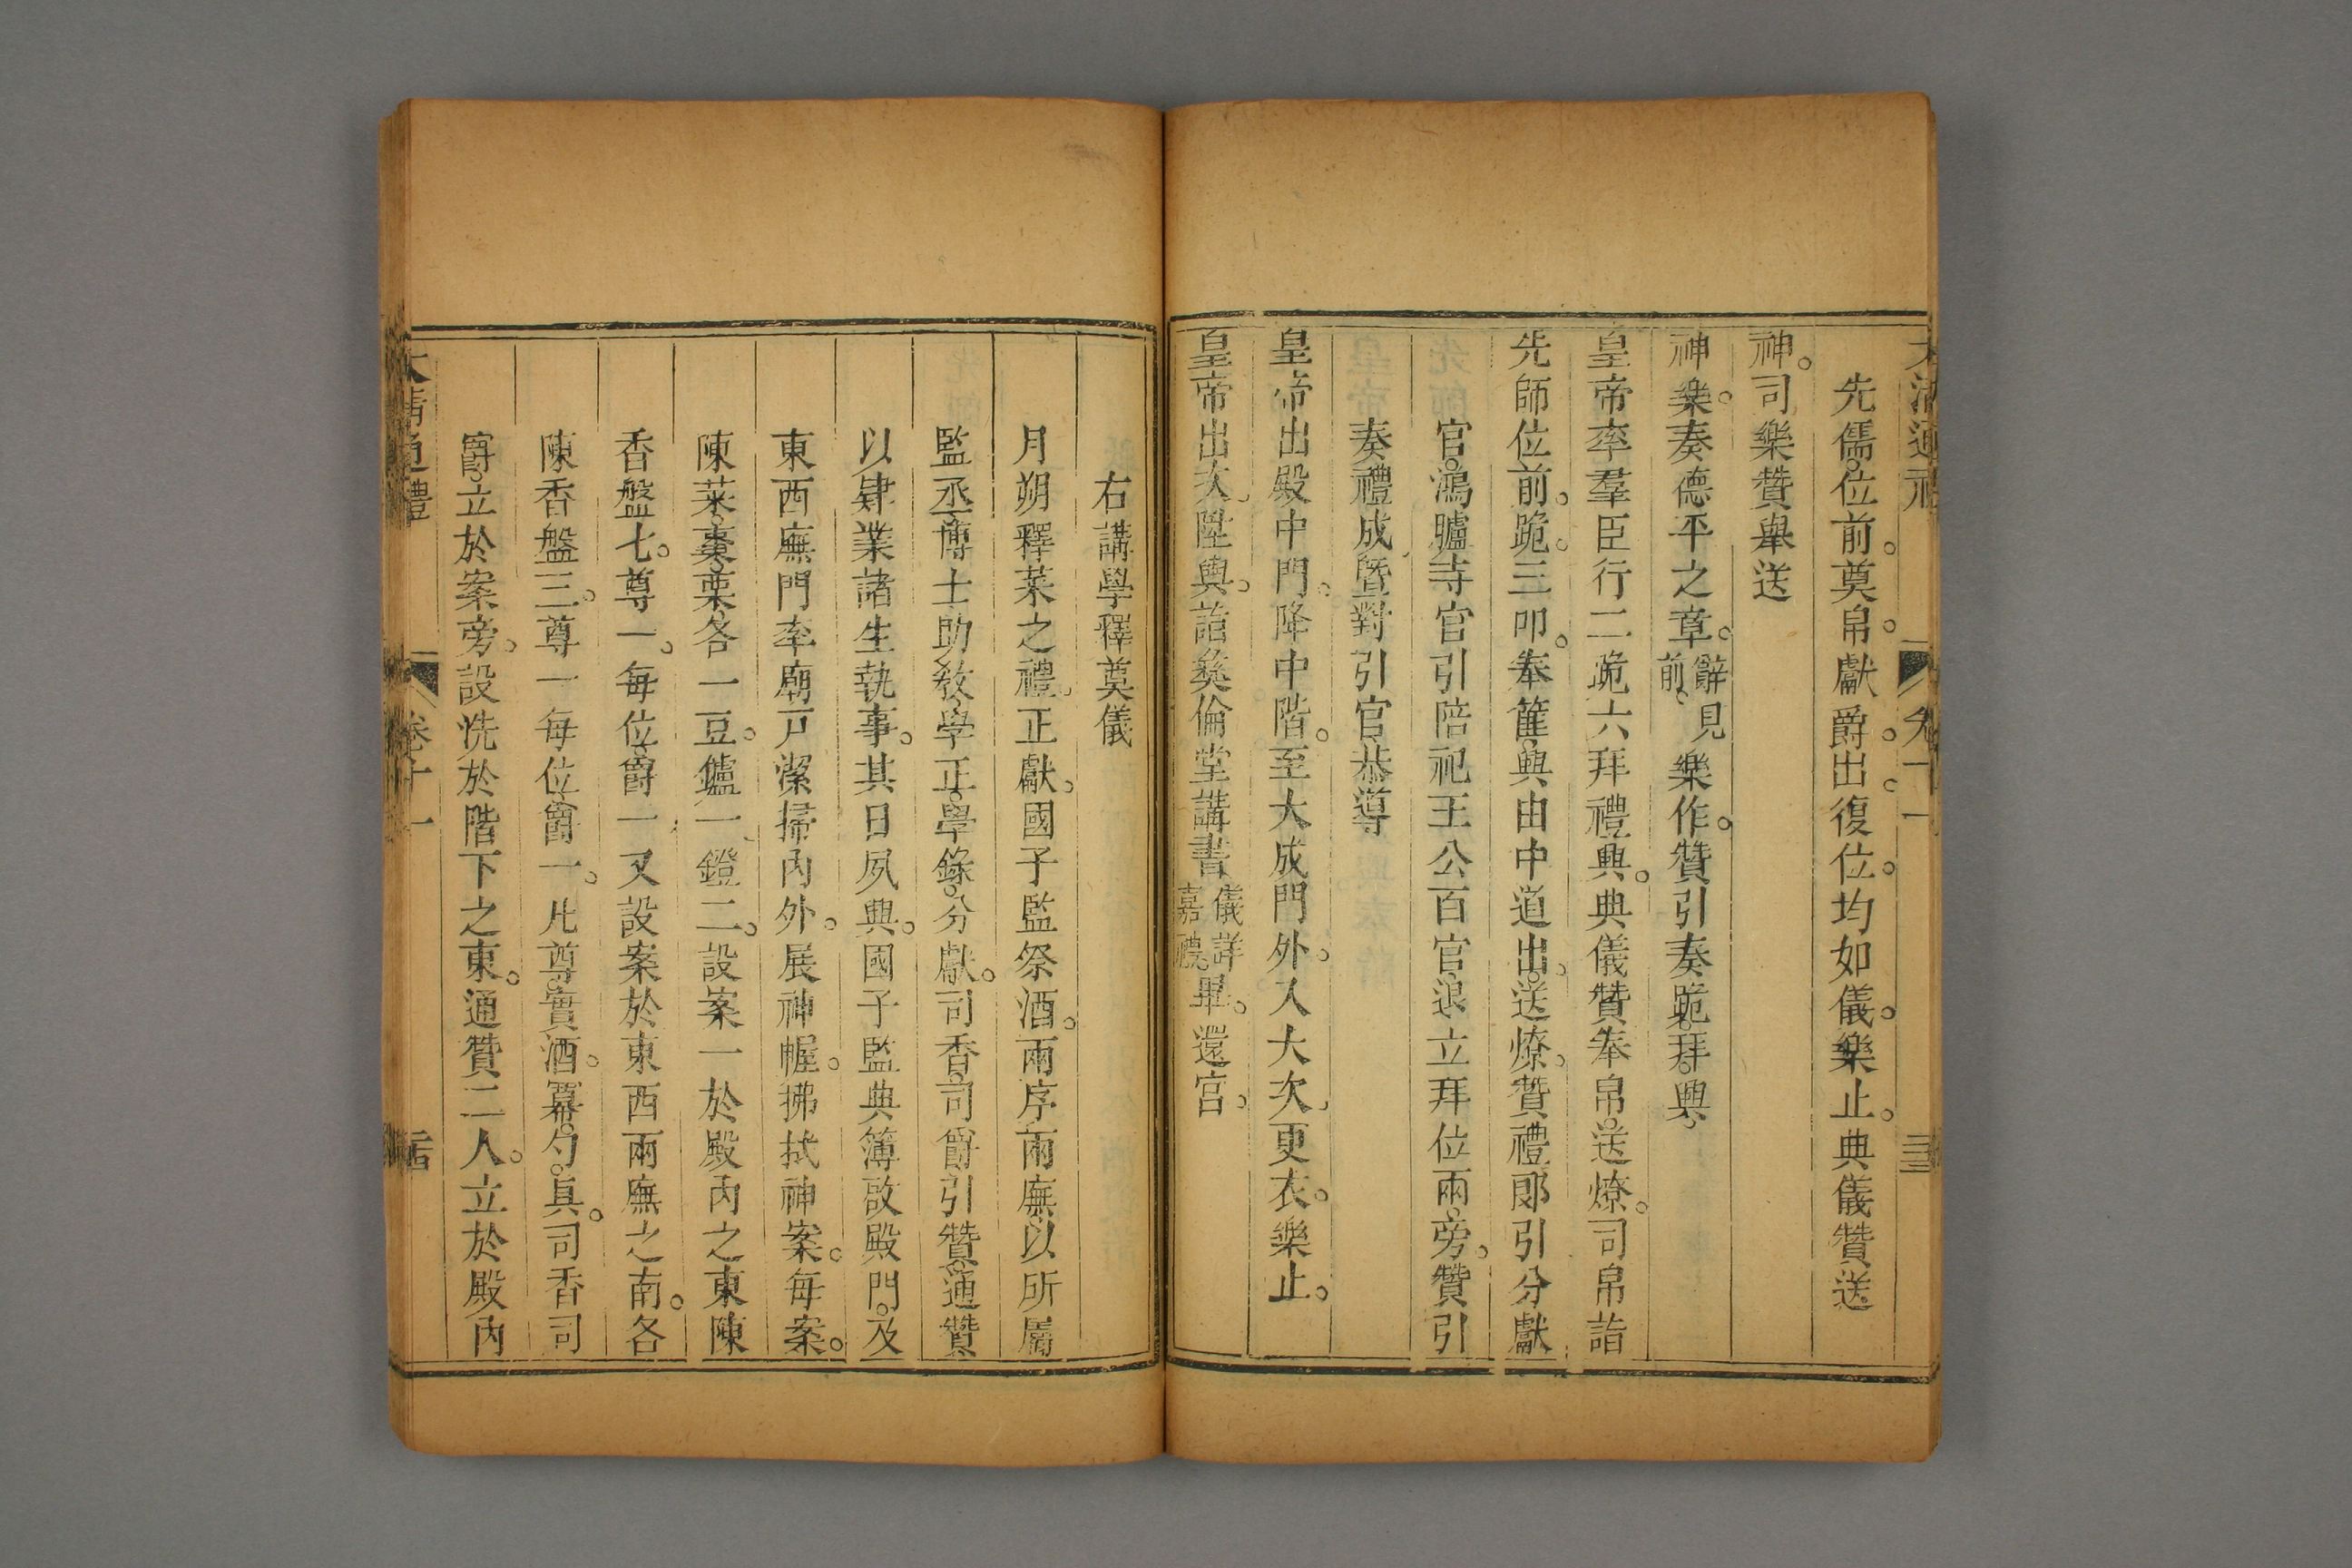 大清通禮 卷十一
先儒位前。奠帛。獻爵。出。復位。均如儀。樂止。典儀贊送
神。司樂贊舉送
神樂。奏德平之章。辭見前。樂作。贊引奏跪。拜。興。
皇帝率羣臣行二跪六拜禮。興。典儀贊奉帛。送燎。司帛詣
先師位前。跪。三叩。奉篚。興。由中道出。送燎。贊禮郎引分獻
官。鴻臚寺官引陪祀王公百官。退立拜位兩旁。贊引
奏禮成。暨對引官。恭導
皇帝出殿中門。降中階。至大成門外。入大次。更衣。樂止。
皇帝出大次。陞輿。詣彝倫堂講書。儀詳嘉禮。畢。還宮。
右講學釋奠儀
月朔釋菜之禮。正獻。國子監祭酒。兩序兩廡。以所屬
監丞。博士。助敎。學正。學錄。分獻。司香。司爵。引贊。通贊。
以肄業諸生執事。其日夙興。國子監典簿啟殿門。及
東西廡門。率廟戸潔掃內外。展神幄。拂拭神案。每案。
陳菜。棗。栗。各一豆。鑪一。鐙二。設案一於殿內之東。陳
香盤七。尊一。每位。爵一。又設案於東西兩廡之南。各
陳香盤三。尊一。每位。爵一。凡尊。實酒。冪。勺。具。司香。司
爵。立於案旁。設洗於階下之東。通贊二人。立於殿內
大清通禮 卷十一